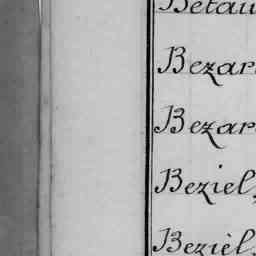 Betau
Bezar
Bezar
Beziel,
Bezièl,